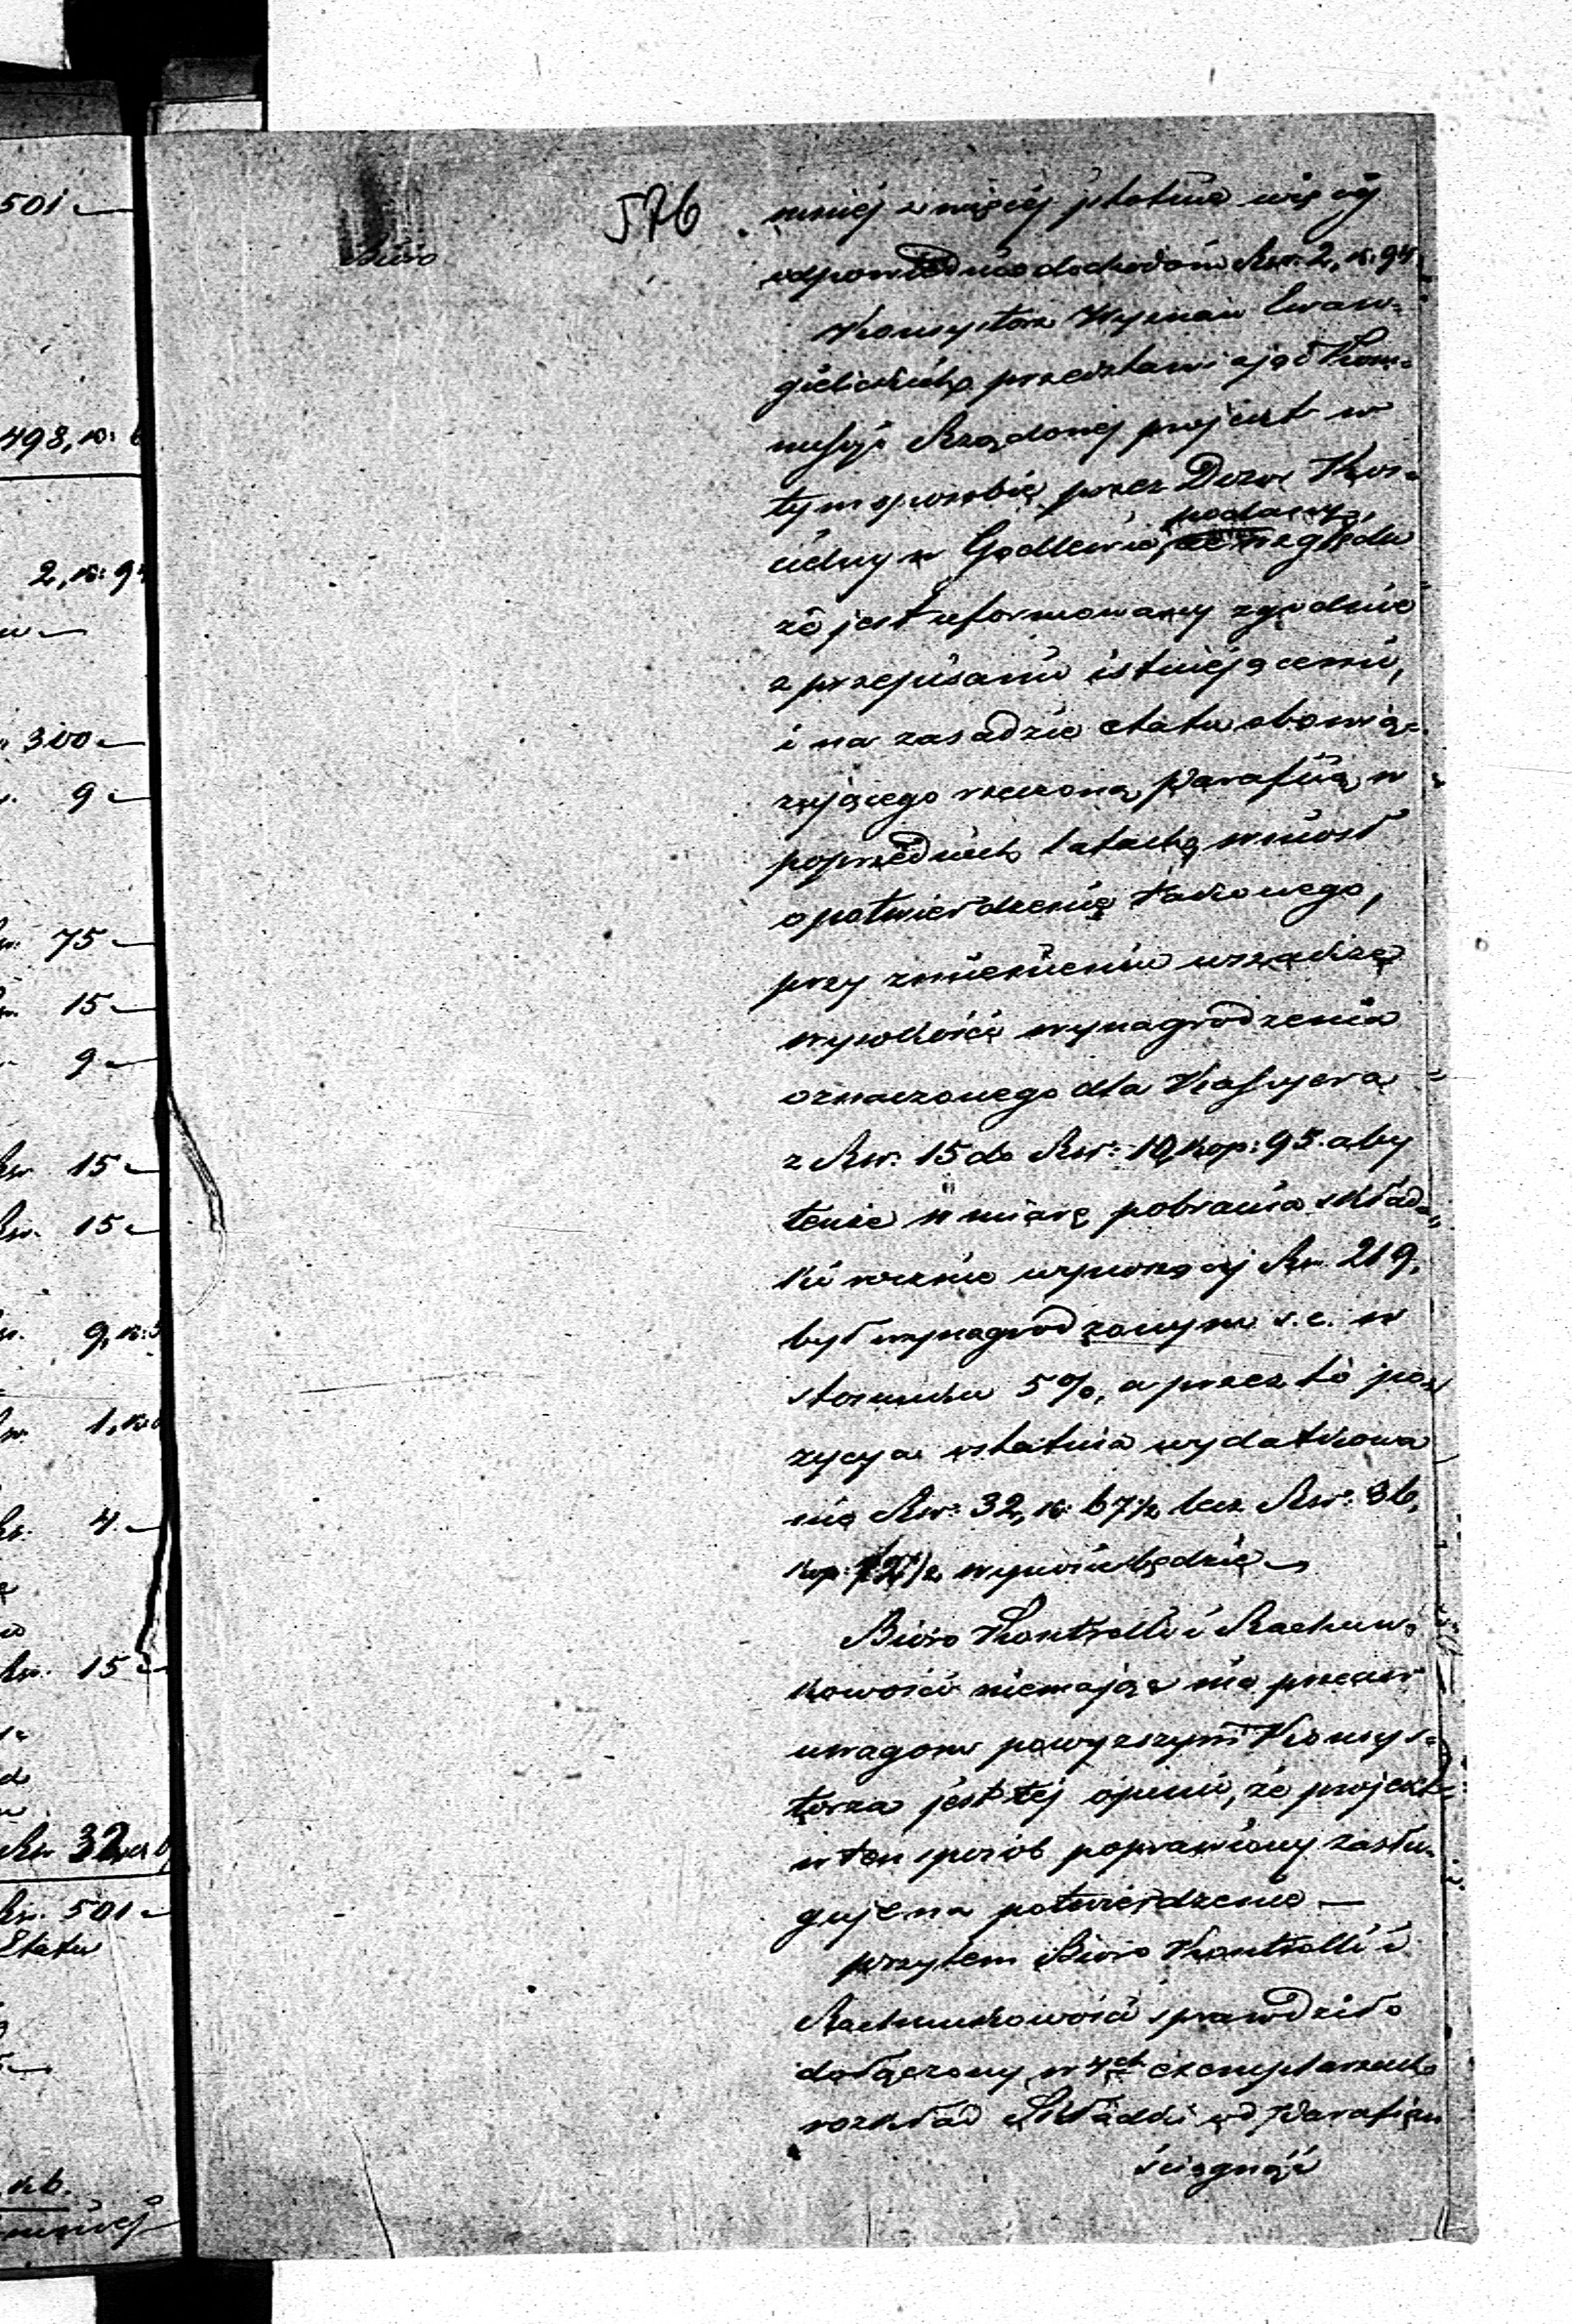 501
498, k: 6
2, k: 94
300
9
75
15
9
15
15
9, k:
1, k:
4
15
Rsr 32
Rsr. 501
Etatu
mniej
Biuro
576
mniej z więcej istotnie więcej
odpowiednio dochodom Rsr: 2, k: 94
Konsystorz Wyznań Ewan-
gielickich przedstawiając Kom-
missyi Rządowej projekt w
tym sposobie przez Dozór Koś-
cielny w Godlewie podany, ze względu
że jest uformowany zgodnie
z przepisami istniejącemi,
i na zasadzie etatu obowią-
zującego rzeczoną Parafiią w
poprzednich latach, wniósł
o potwierdzenie takowego,
przy zmienieniu wszakże
wysokości wynagrodzenia
oznaczonego dla Kassyera
z Rsr: 15 do Rsr: 10, kop: 95. aby
tenże w miarę pobrania skład-
ki rocznie wynoszącej Rsr. 219,
był wynagrodzonym s. c. w
stosunku 5%, a przez to po-
zycya ostatnia wydatkowa
nie Rsr: 32, k: 67½ lecz Rsr: 36,
kop: 72½ wynosić będzie
Biuro Kontrolli i Rachun-
kowości niemając nic przeciw
uwagom powyższym Konsys-
torza jest téj opinii, że projekt
w ten sposób poprawiony zasłu-
guje na potwierdzenie —
przytem Biuro Kontrolli i
Rachunkowości sprawdziło
dołączony w 4ch exemplarzach
rozkład Składki od Parafian
ściągnąć